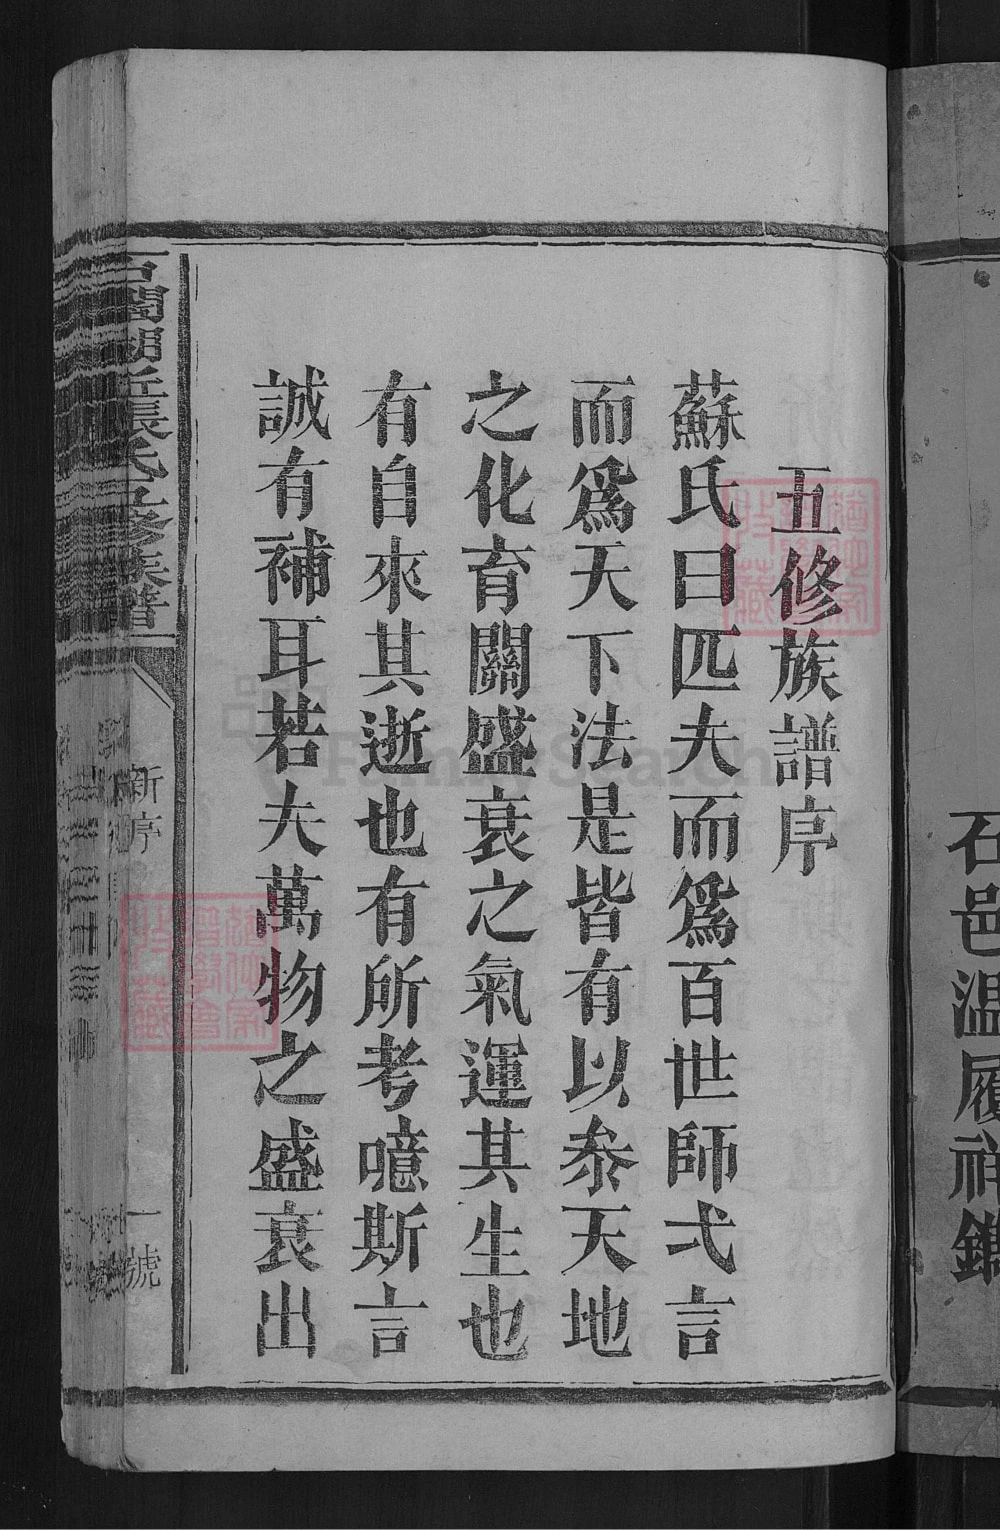 石邑温履祥鐫
五修族譜序
蘇氏曰匹夫而爲百世師弌言
而爲天下法是皆有以叅天地
之化育關盛衰之氣運其生也
有自來其逝也有所考噫斯言
誠有補耳若夫萬物之盛衰出
閣湖丘張氏五修族譜
新序
一號
FamilySearch